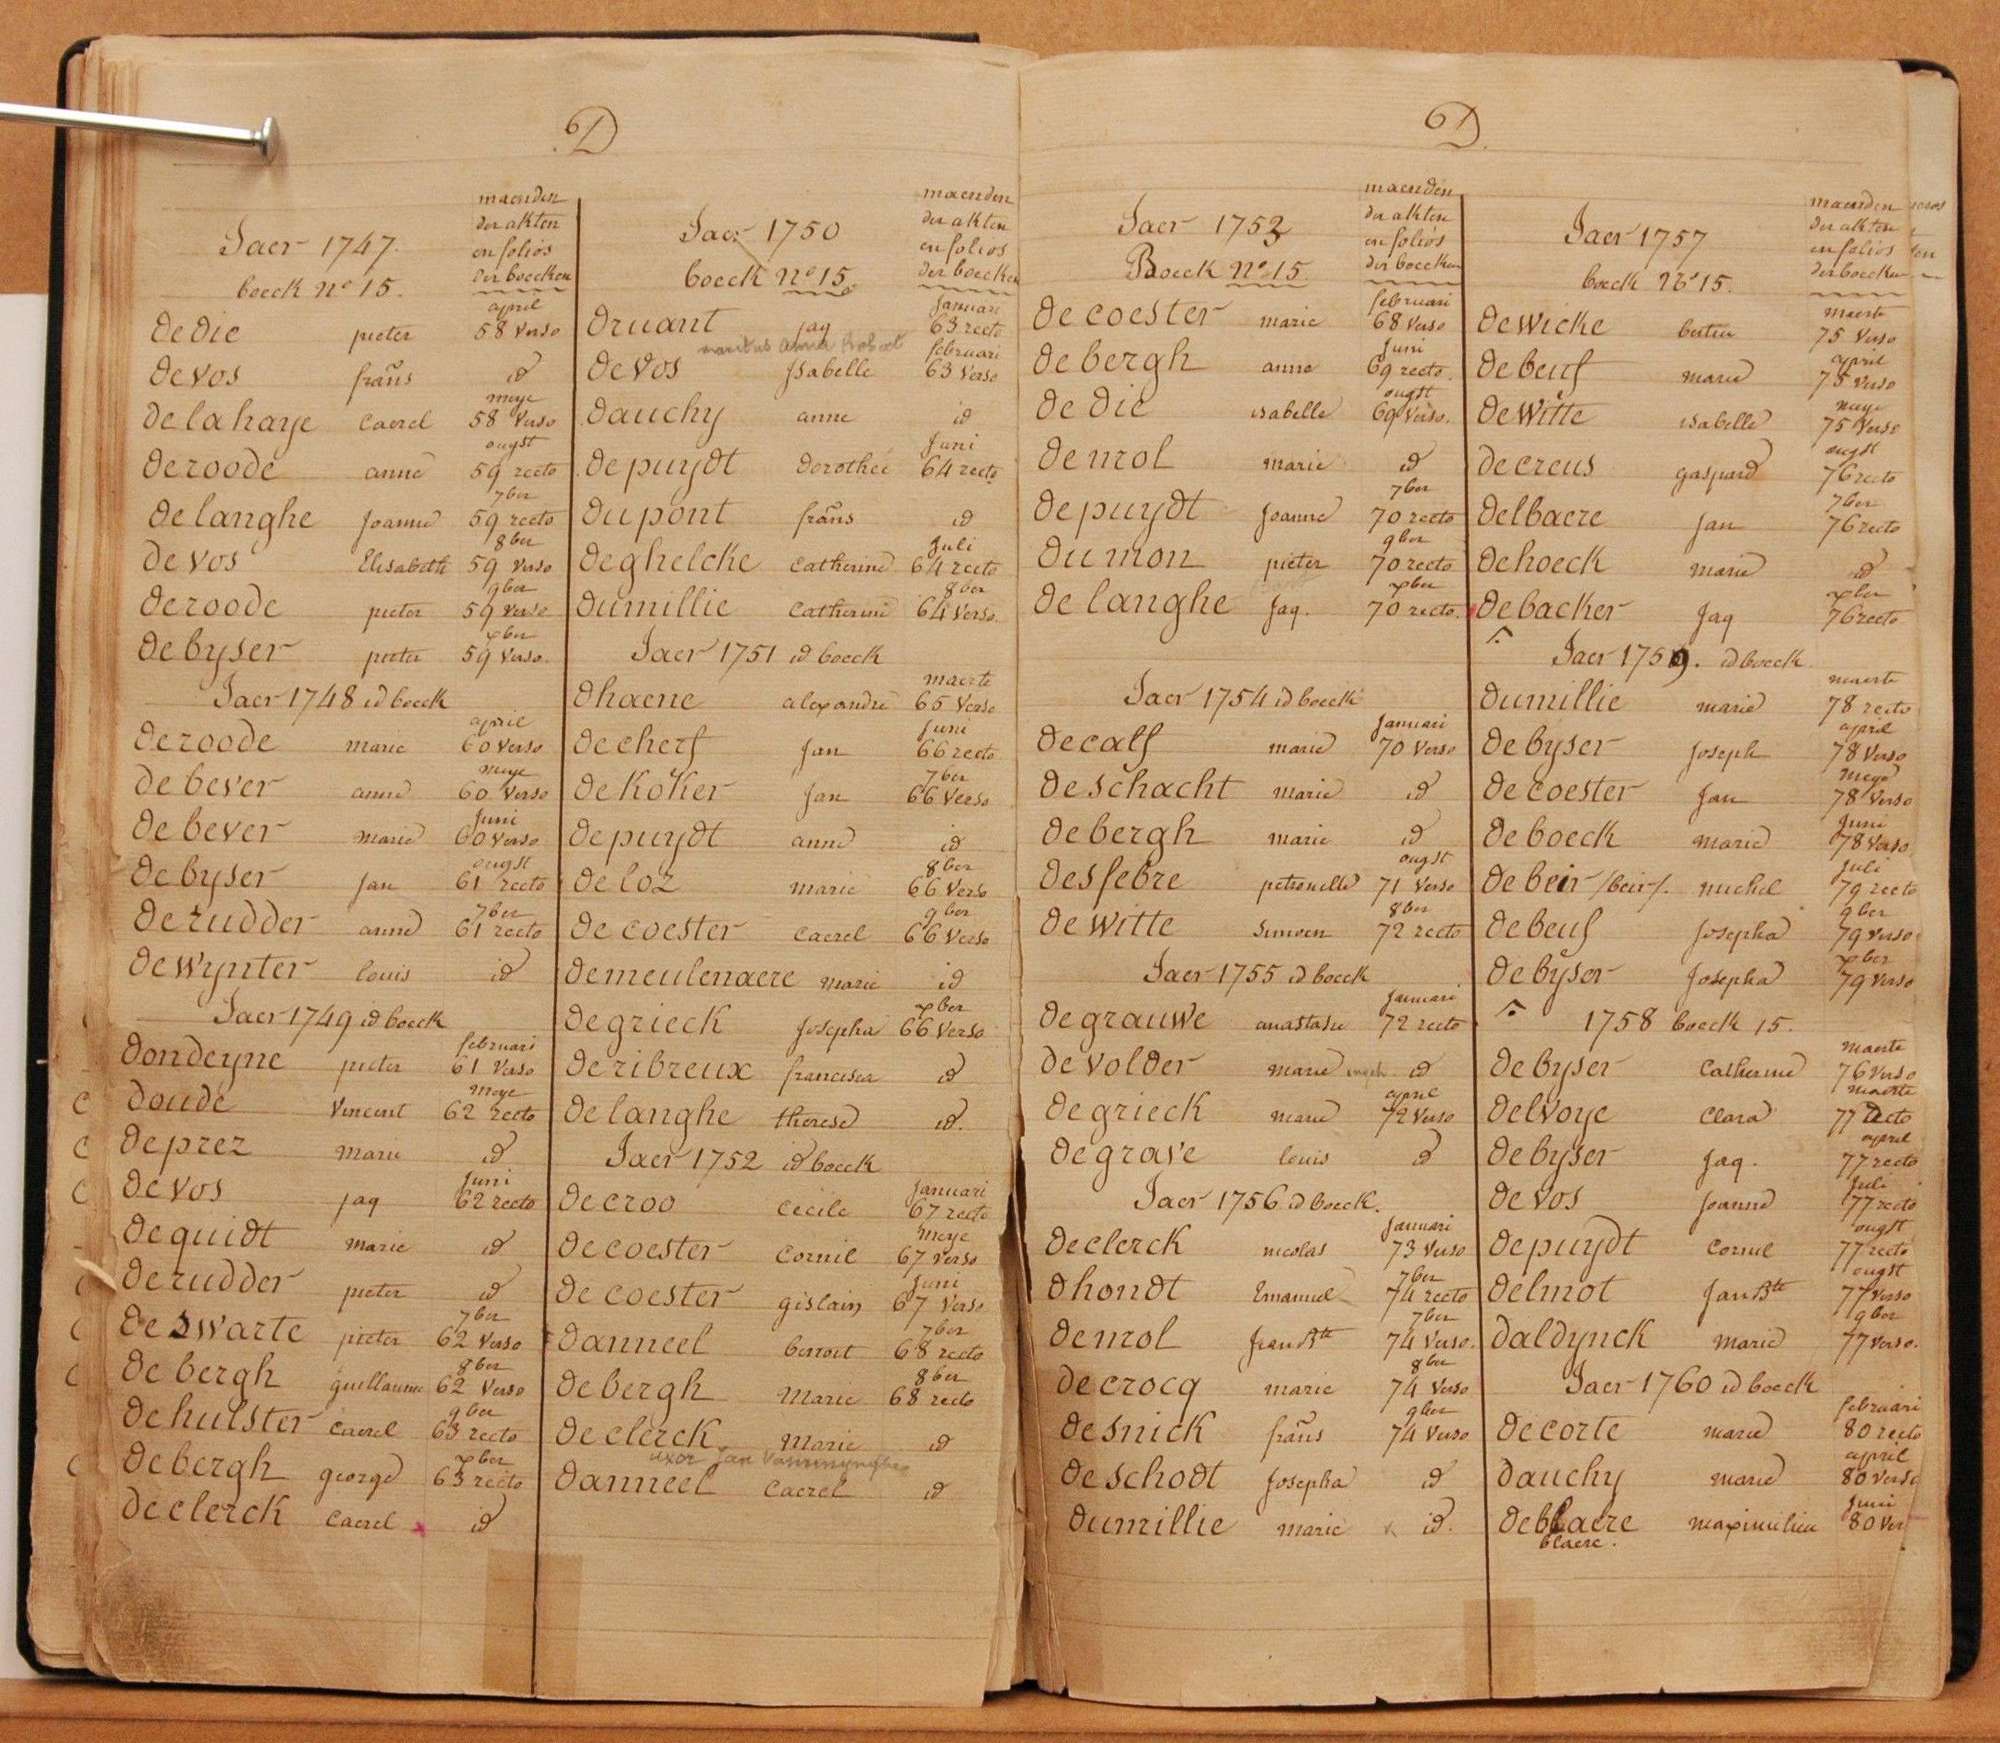 D
maenden
der akten
en folios
der boecken
Jaer 1747.
boeck nº 15.
april
de die pieter 58 verso
de vos frans id
meye
de la haye Caerel 58 verso
ougst
de roode anne 59 recto
7ber
de langhe joanne 59 recto
8ber
de vos Elisabeth 59 verso
9ber
de roode pieter 59 verso
xber
de byser pieter 59 verso
Jaer 1748 id boeck
april
de roode marie 60 verso
meye
de bever anne 60 verso
juni
de bever marie 60 verso
ougst
de byser jan 61 recto
7ber
de rudder anne 61 recto
de wynter louis id
Jaer 1749 id boeck
februari
dondeyne pieter 61 verso
meye
doude vincent 62 recto
deprez marie id
juni
de vos jaq 62 recto
dequidt marie id
de rudder pieter id
7ber
de swarte pieter 62 verso
8ber
de bergh guillaume 62 verso
9ber
de hulster Caerel 63 recto
xber
de bergh george 63 recto
de clerck Caerel id
maenden
der akten
en folios
der boecken
Jaer 1750
boeck nº 15.
januari
druant jaq 63 recto
maritus anna
februari
de vos jsabelle 63 verso
dauchy anne id
juni
de puydt dorothée 64 recto
dupont frans id
juli
deghelcke catherine 64 recto
8ber
dumillie catherine 64 verso
Jaer 1751 id boeck
maerte
dhaene alexandre 65 verso
juni
decherf jan 66 recto
7ber
de koker jan 66 verso
de puydt anne id
8ber
de loz marie 66 verso
9ber
de coester caerel 66 verso
demeulenaere marie id
xber
de grieck josepha 66 verso
de ribreux francisca id
de langhe therese id.
Jaer 1752 id boeck
januari
de croo cecile 67 recto
meye
de coester Cornil 67 verso
juni
de coester gislain 67 verso
7ber
danneel benoit 68 recto
8ber
de bergh marie 68 recto
de clerck marie id
uxor jan
danneel Caerel id
D.
maenden
der akten
en folios
der boecken
Jaer 1753
Boeck nº 15.
februari
de coester marie 68 verso
juni
de bergh anne 69 recto
ougst
de die isabelle 69 verso.
de mol marie id
7ber
de puydt joanne 70 recto
9ber
du mon pieter 70 recto
xber
de langhe jaq. 70 recto.
Jaer 1754 id boeck
januari
de calf marie 70 verso
de schacht marie id
de bergh marie id
ougst
desfebre petronelle 71 verso
8ber
de witte simoen 72 recto
Jaer 1755 id boeck
januari
de grauwe anastasie 72 recto
de volder marie id
april
de grieck marie 72 verso
de grave louis id
Jaer 1756 id boeck.
januari
de clerck nicolas 73 verso
7ber
dhondt Emanuel 74 recto
7ber
de mol jean Bte 74 verso.
8ber
de crocq marie 74 verso
9ber
de snick frans 74 verso
de schodt josepha id
dumillie marie id.
maenden
der akten
en folios
der boecken
Jaer 1757
boeck nº 15.
maerte
de wicke bertin 75 verso
april
de beuf marie 75 verso
meye
de witte isabelle 75 verso
ougst
de creus gaspard 76 recto
7ber
delbaere jan 76 recto
de hoeck marie id
xber
de backer jaq 76 recto
Jaer 1759. id boeck
maerte
dumillie marie 78 recto
april
de byser joseph 78 verso
meye
de coester jan 78 verso
juni
de boeck marie 78 verso
juli
de beir /beir/. michel 79 recto
9ber
de beuf josepha 79 verso
xber
de byser josepha 79 verso
1758 boeck 15.
maerte
de byser Catherine 76 verso
maerte
delvoye Clara 77 recto
april
de byser jaq. 77 recto
juli
de vos joanne 77 recto
ougst
de puydt Cornil 77 recto
ougst
delmot jan Bte 77 verso
9ber
daldynck marie 77 verso.
Jaer 1760 id boeck
februari
de corte marie 80 recto
april
dauchy marie 80 verso
juni
deblaere maximilien 80 ver
blaere.